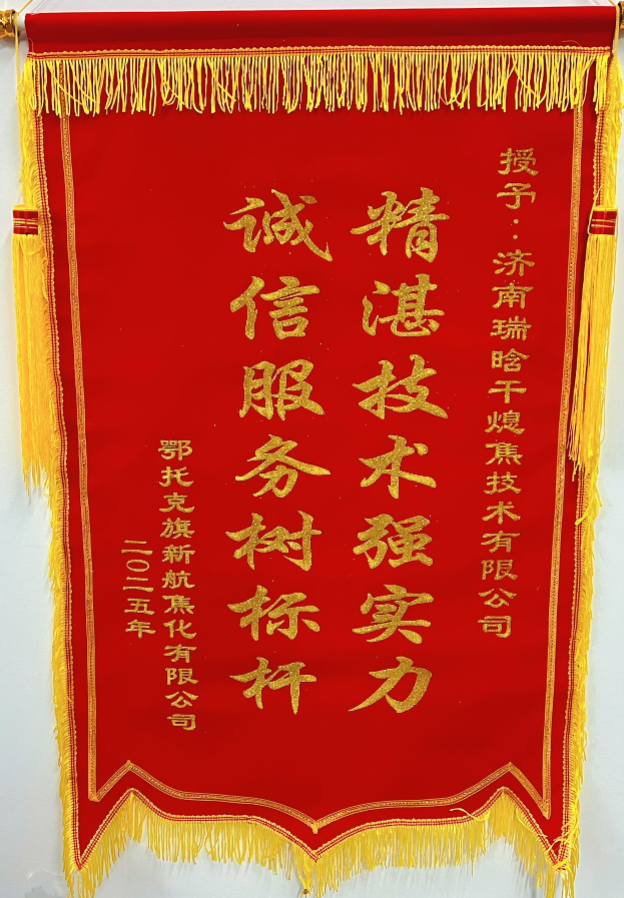 授予：济南瑞晗干熄焦技术有限公司
精湛技术强实力
诚信服务树标杆
鄂托克旗新航焦化有限公司
二〇二五年